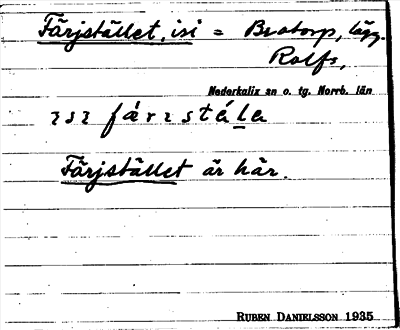 Färjstället, isi = Brotorp, lägg.
Rolfs,
Nederkalix sn o. tg. Norrb. län
ısı fárıstála
Färjstället är här.
RUBEN DANIELSSON 1935